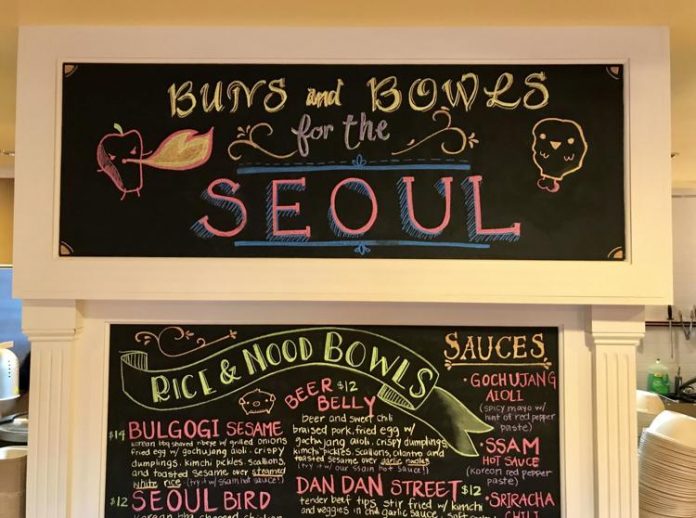 BUNS and BOWLS
for the
SEOUL
RICE & NOOD BOWLS
$14 BULGOGI SESAME
Korean bbq shaved ribeye w/ grilled onions
fried egg w/ gochujang aioli. crispy
dumplings. kimchi pickles. scallions.
and toasted sesame over steamed
white rice (try it w/ ssam hot sauce!)
$12 SEOUL BIRD
BEER $12
BELLY
beer and sweet chili
braised pork, fried egg w/
gochujang aioli. crispy dumplings
kimchi pickles. scallions, cilantro and
toasted sesame over garlic noodles
(try it w/ our ssam hot sauce!)
DAN DAN STREET $12
tender beef tips stir fried w/ kimchi
and veggies in the garlic sauce
SAUCES
• GOCHUJANG
AIOLI
(spicy mayo w/
hint of red pepper
paste)
• SSAM
HOT SAUCE
(Korean red pepper
paste)
• SRIRACHA
CHILI